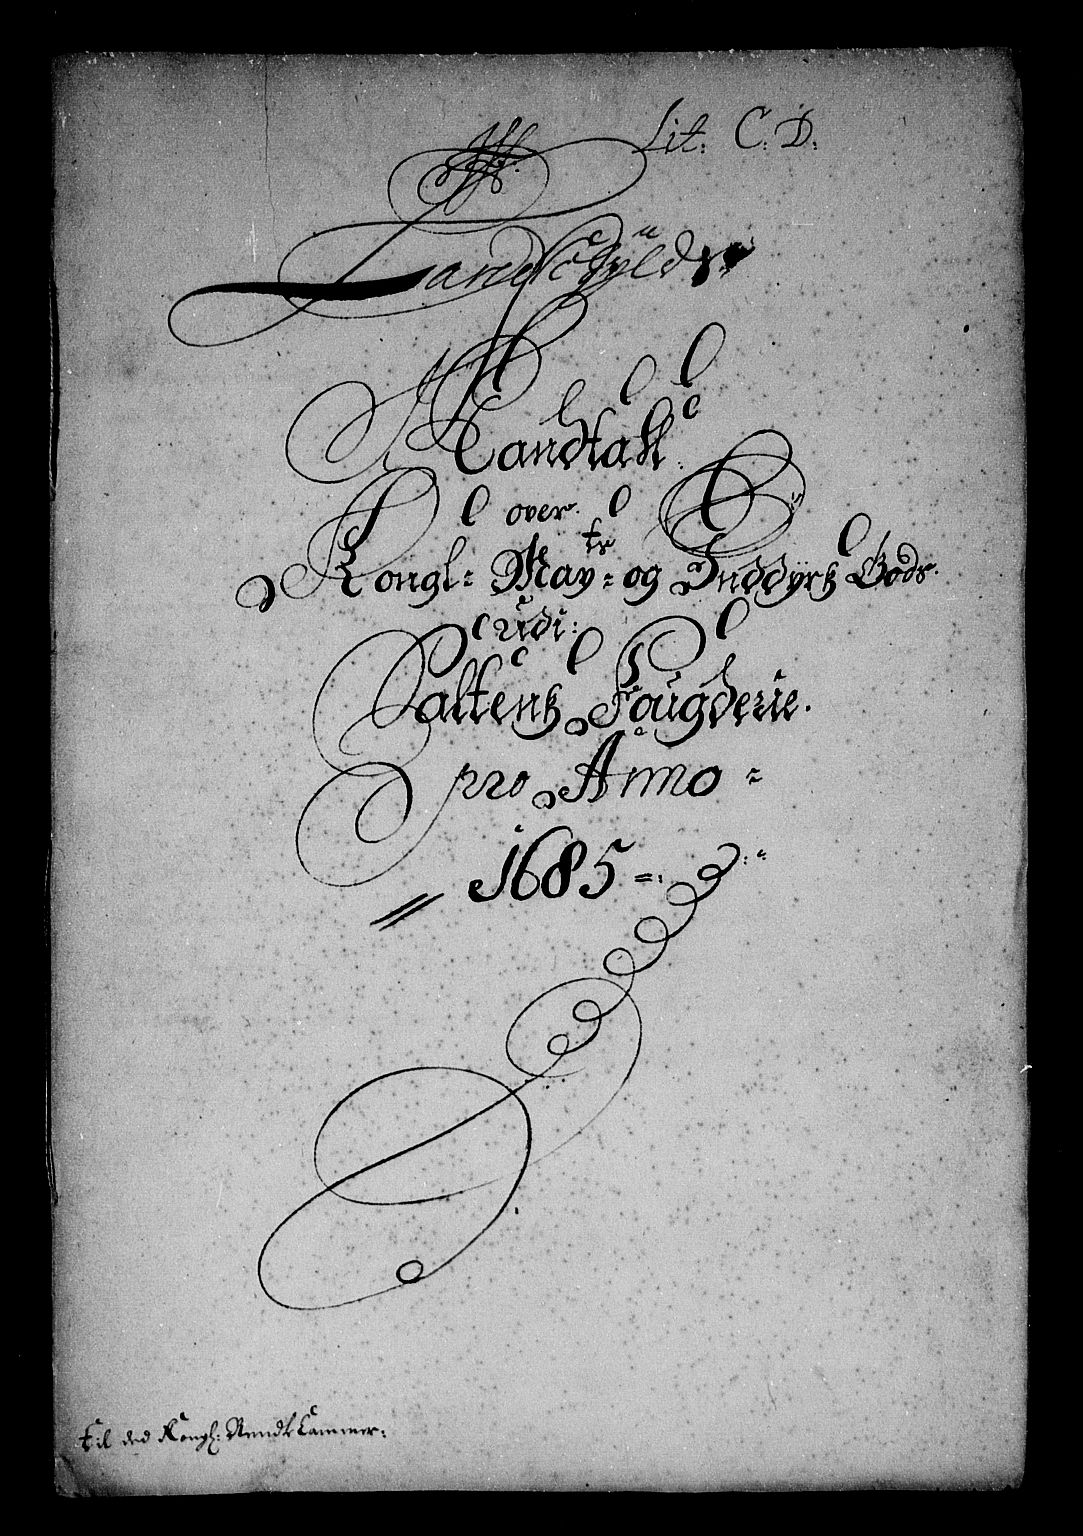 Lit. C. D.
Landschÿlds
Mandtall
over
Kongl: May:ts og Inddÿrs Godz
udi
Saltens Fougderie.
pro Anno
1685
til ded Kongl: Rendt Cammer.